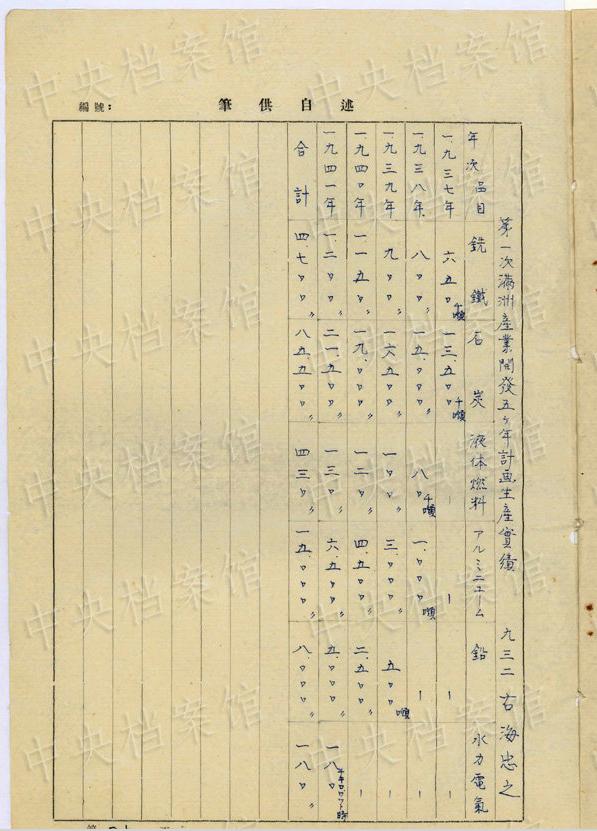 編號：
筆供自述
第一次滿洲産業開發五ヶ年計画生産實績 九三二 古海忠之
年次 品目 銑鐵 石炭 液体燃料 アルミニユーム 鉛 水力電氣
一.九三七年 六五〇千噸 一三.五〇〇千噸 | | | |
一.九三八年 八〇〇〃 一五.〇〇〇〃 八〇千噸 一.〇〇〇噸 | |
一.九三九年 九〇〇〃 一六五〇〇〃 一〇〇〃 三.〇〇〇〃 五〇〇噸 |
一.九四〇年 一一五〇〃 一九.〇〇〇〃 一二〇〃 四.五〇〇〃 二.五〇〇〃 |
一.九四一年 一.二〇〇〃 二一.五〇〇〃 一三〇〃 六.五〇〇〃 五.〇〇〇〃 一八〇千キロワツト時
合計 四.七〇〇〃 八五.五〇〇〃 四三〇〃 一五.〇〇〇〃 八.〇〇〇〃 一八〇
中央档案馆